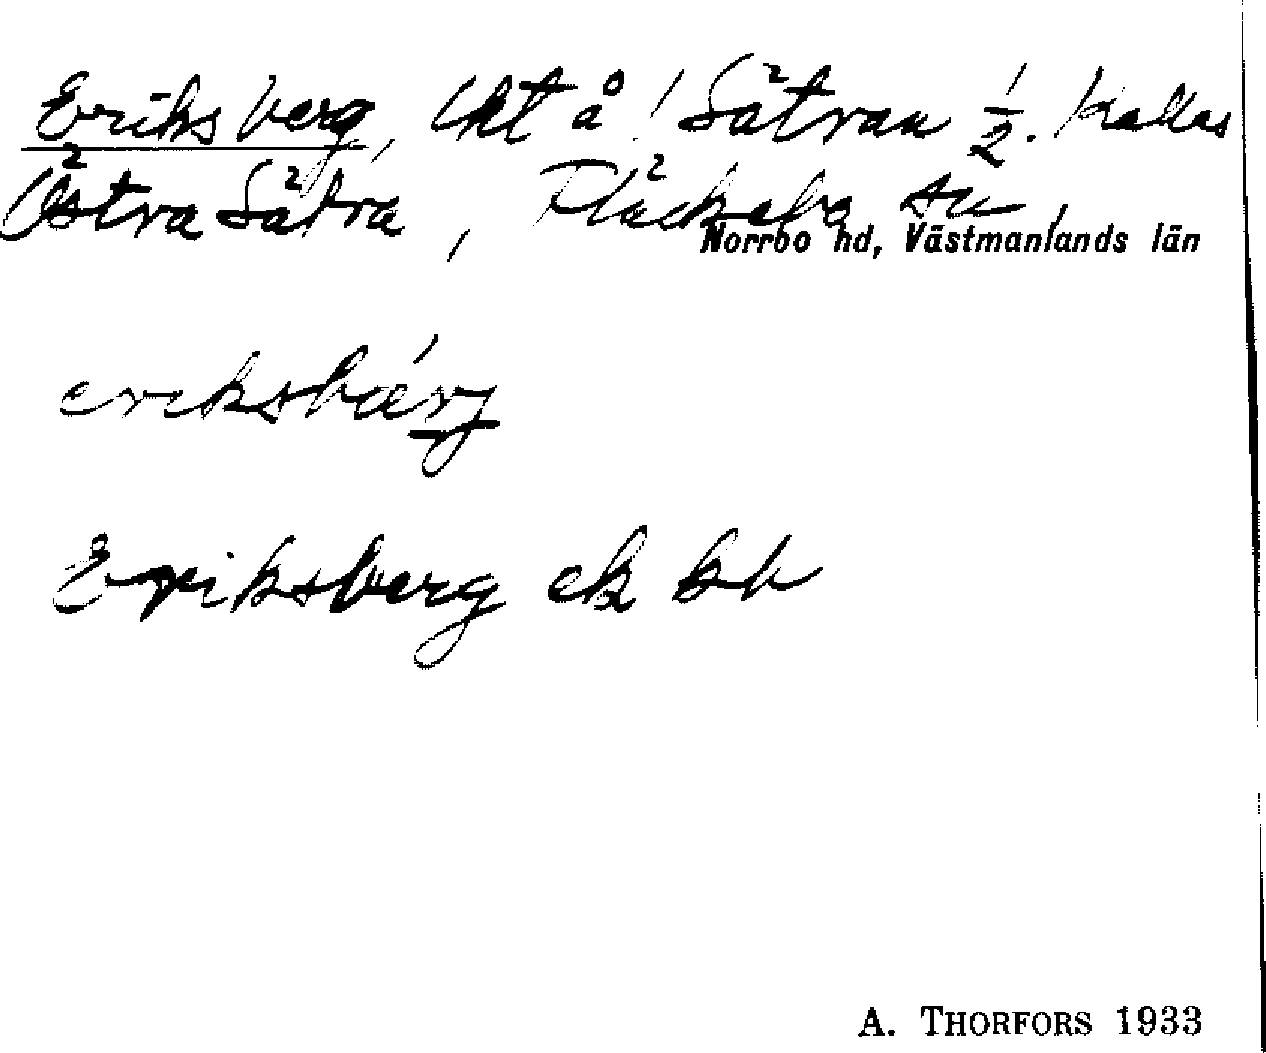 Eriksberg, lht å ! Sätran 1/2. Kallas
Östra Sätra, Fläckebo sn,
Norrbo hd, Västmanlands län
eriksbærj
Eriksberg ek kb
A. THORFORS 1933